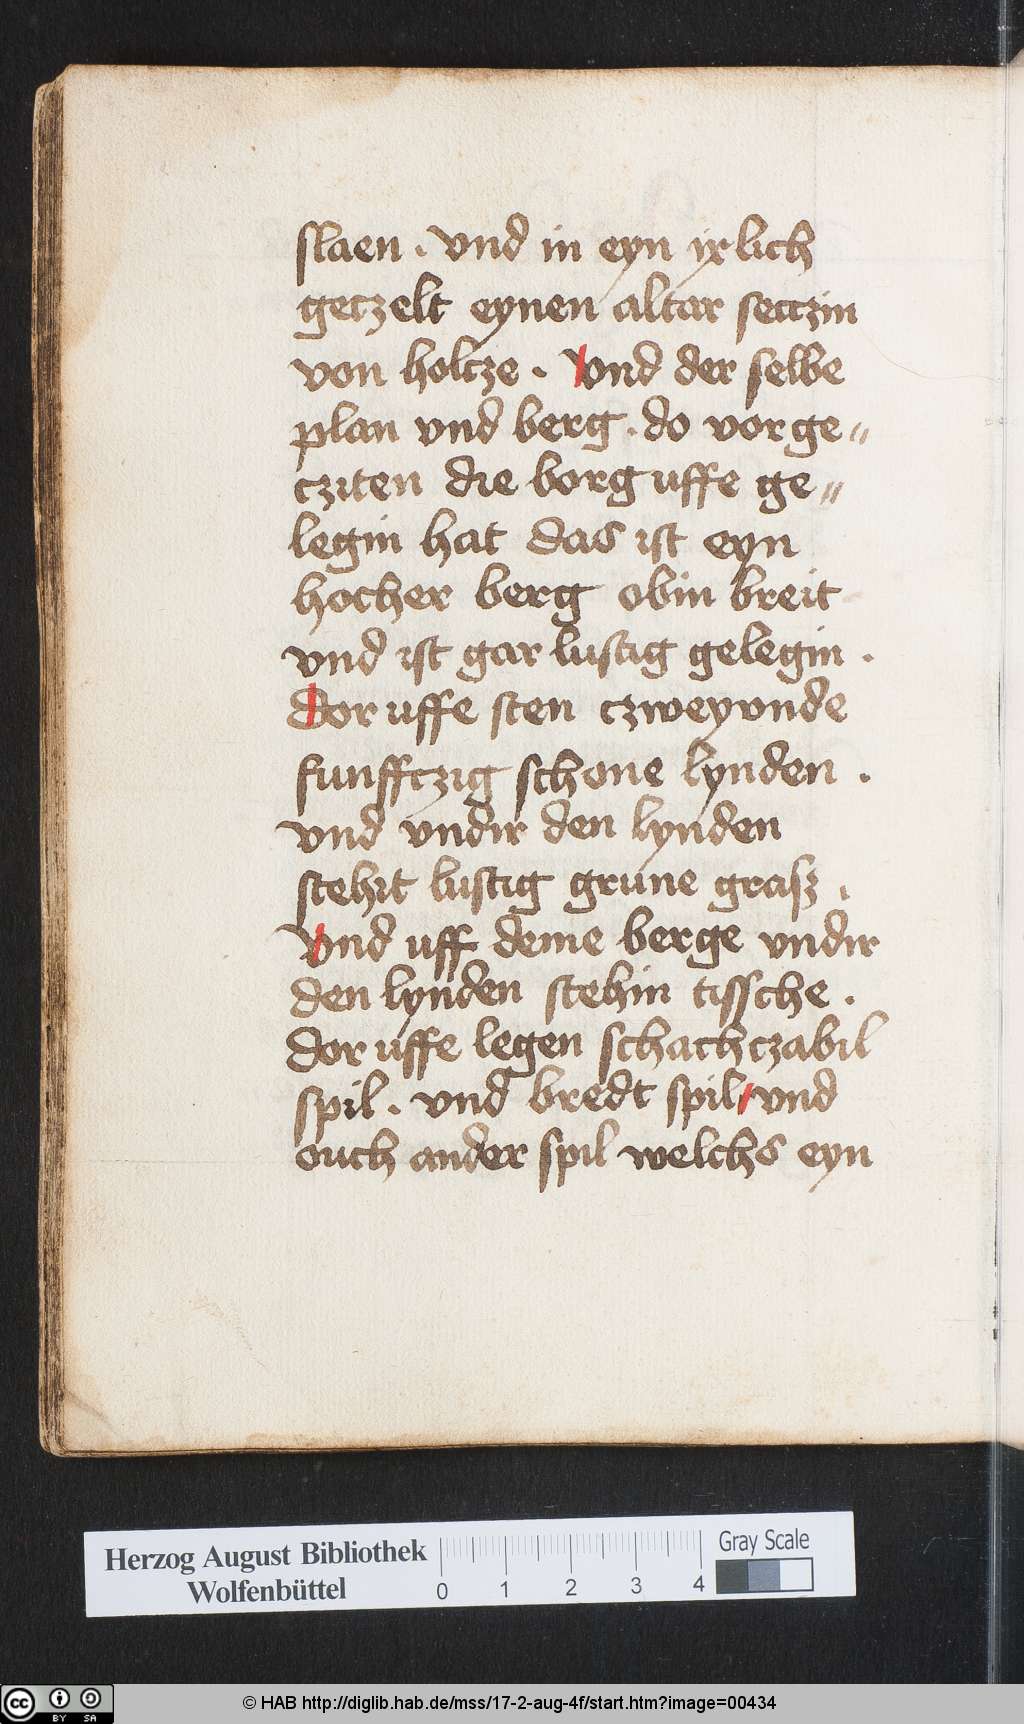 slaen . vnd in eyn ixlich
getzelt eynen altar setczin
von holtze . Vnd der selbe
plan vnd berg . do vor ge〃
cziten die borg uffe ge〃
legin hat das ist eyn
hocher berg obin breit
vnd ist gar lustig gelegin .
Dor uffe sten czweyvnde
funffczig schone lynden .
vnd vndir den lynden
stehit lustig grune grasz .
Vnd uff deme berge vndir
den lynden stehin tissche .
dor uffe legen schachczabil
spil . vnd bredt spil / vnd
ouch ander spil welchs eyn
Herzog August Bibliothek
Wolfenbüttel
0 1 2 3 4
Gray Scale
cc BY SA
© HAB http://diglib.hab.de/mss/17-2-aug-4f/start.htm?image=00434